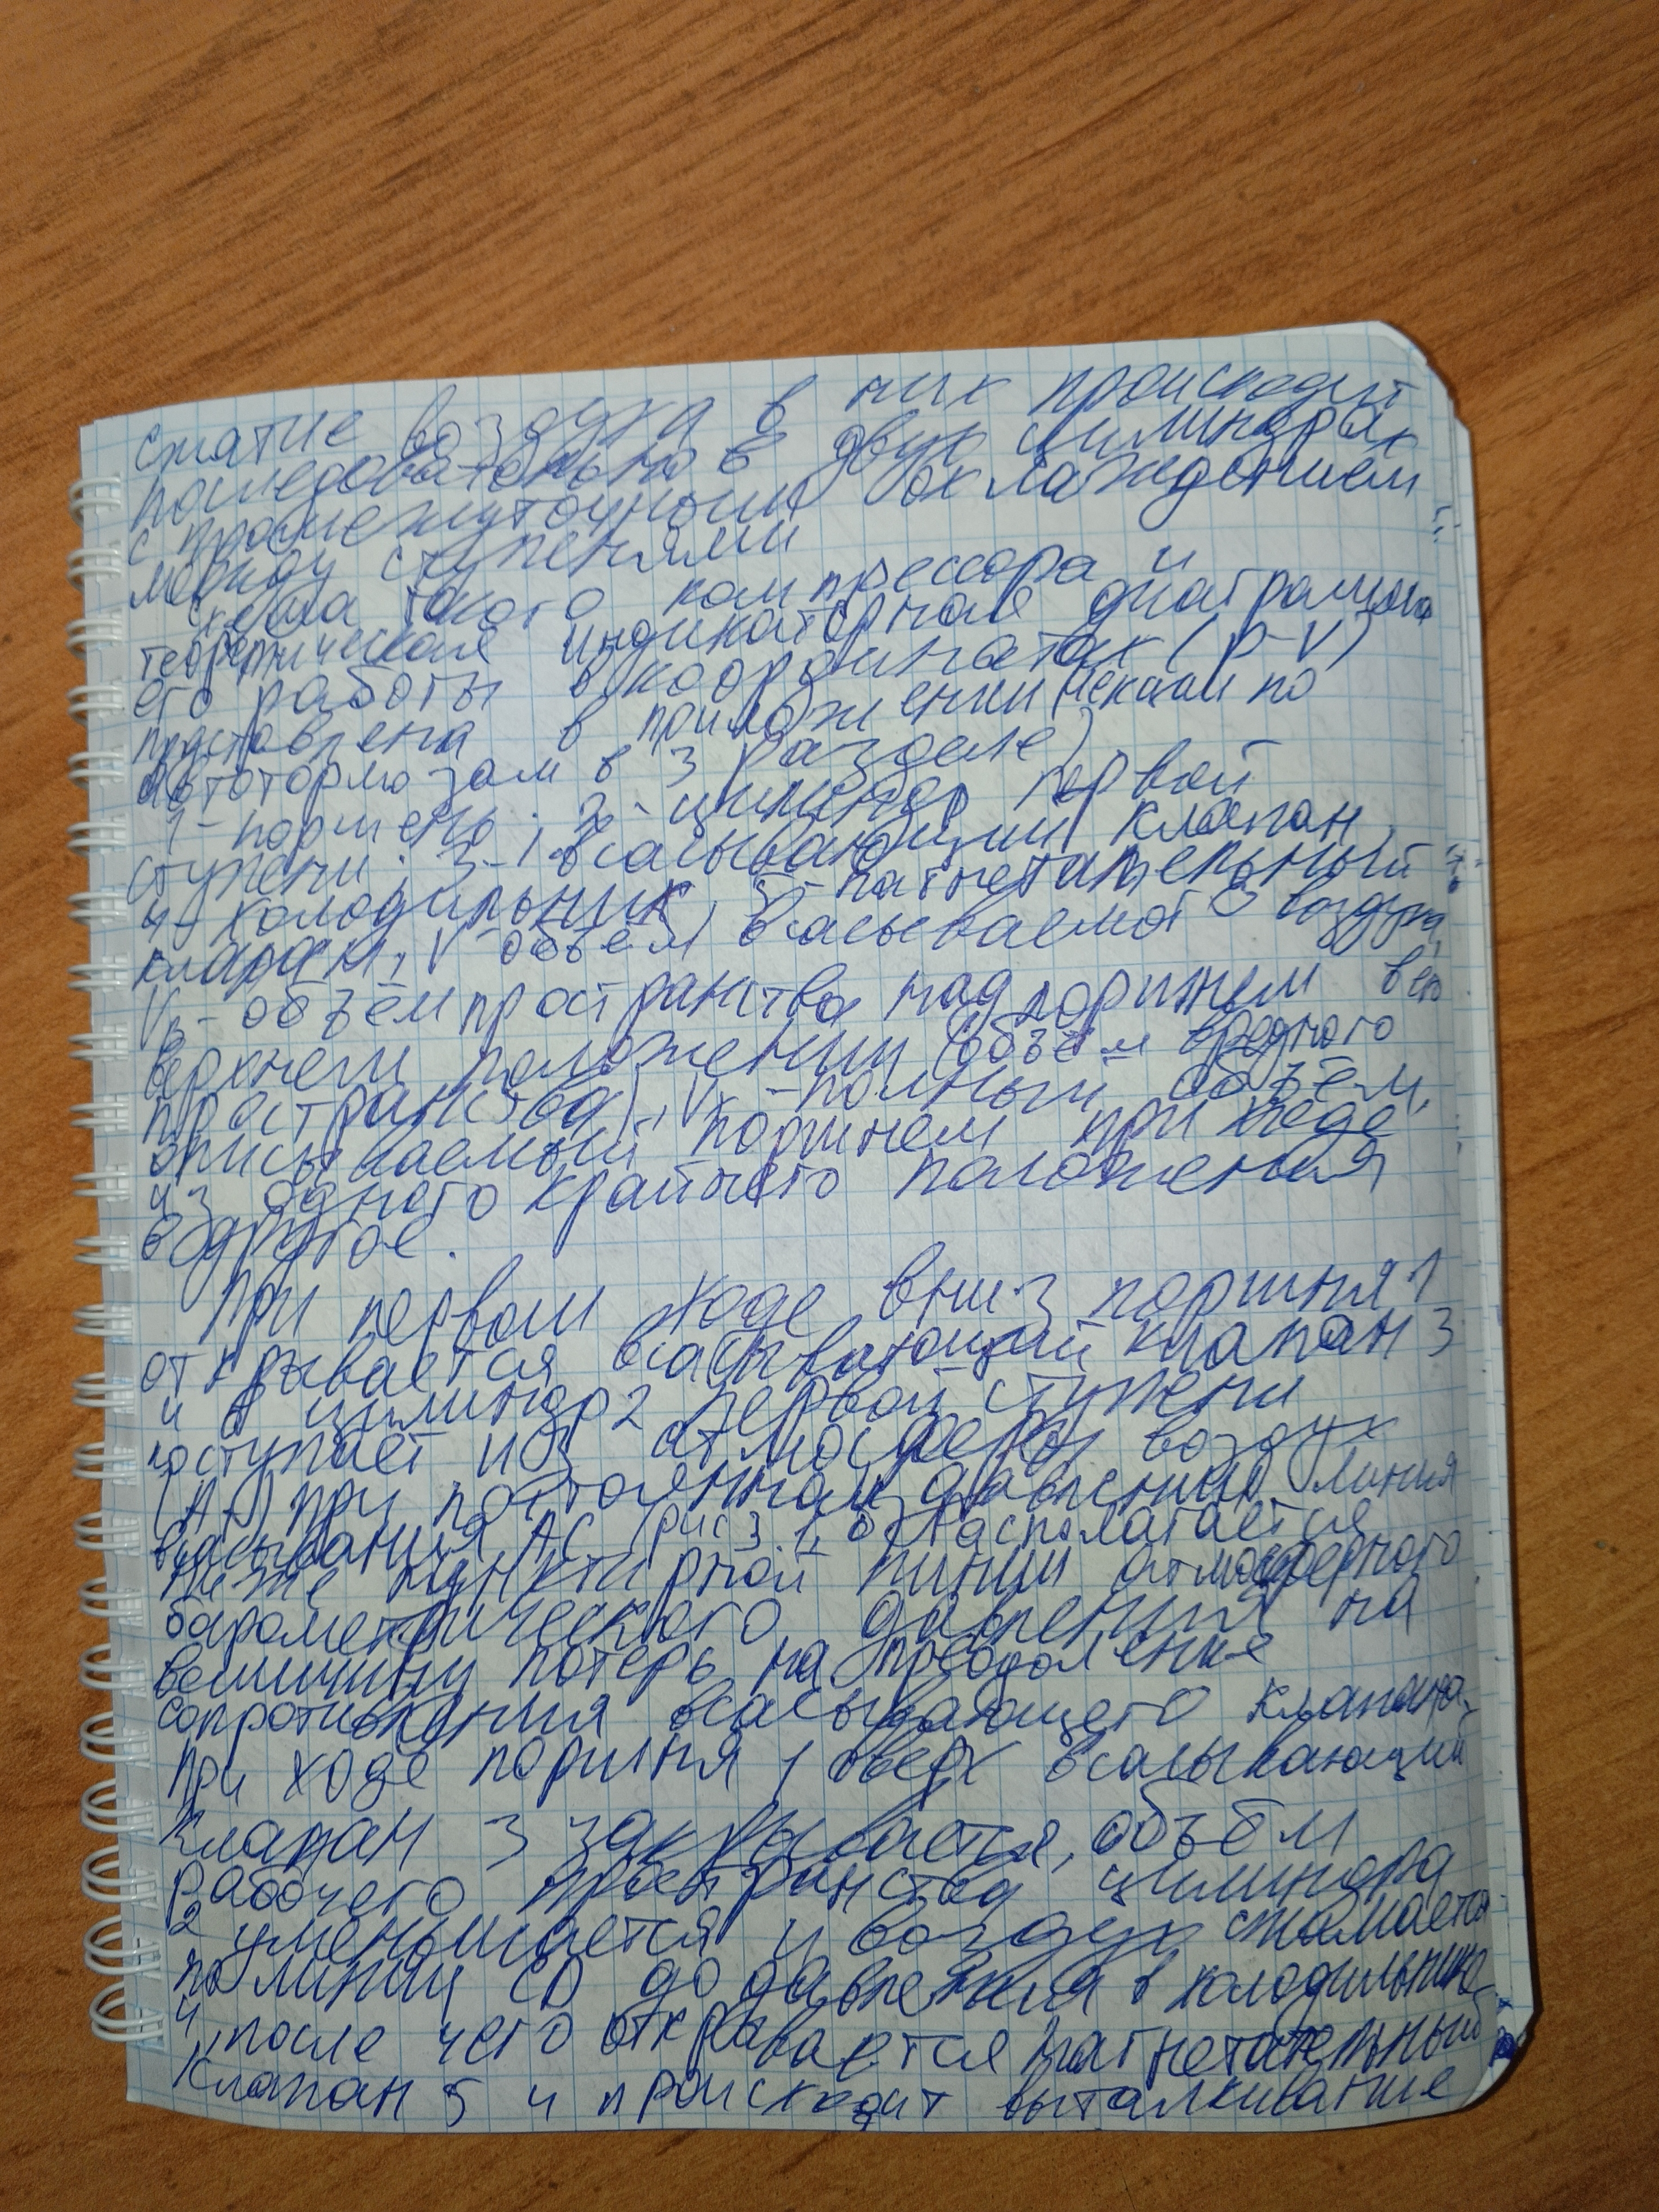 сжатие воздуха в них происходит
последовательно в двух цилиндрах
с промежуточным охлаждением
между ступенями
Схема такого компрессора и
теоретическая индикаторная диаграмма
его работы в координатах (p-V)
представлена в приложении (лекции по
автотормозам в 3 разделе)
1-поршень; 2-цилиндр первой
ступени; 3-всасывающий клапан,
4-холодильник, 5-нагнетательный
клапан, V-объём всасываемого воздуха,
Vв-объём пространства над поршнем в его
верхнем положении (объём вредного
пространства), V -полный объём,
описываемый поршнем при ходе
из одного крайнего положения
в другое.
При первом ходе вниз поршня 1
открывается всасывающий клапан 3
и в цилиндр 2 первой ступени
поступает из атмосферы воздух
при постоянном давлении линия
всасывания АС (рис 3.1, б) располагается
ниже пунктирной линии атмосферного
барометрического давления на
величину потерь на преодоление
сопротивления всасывающего клапана.
При ходе поршня 1 вверх всасывающий
клапан 3 закрывается, объём
рабочего пространства цилиндра
2 уменьшается и воздух сжимается
по линии CD до давления в холодильнике
4, после чего открывается нагнетательный
клапан 5 и происходит выталкивание